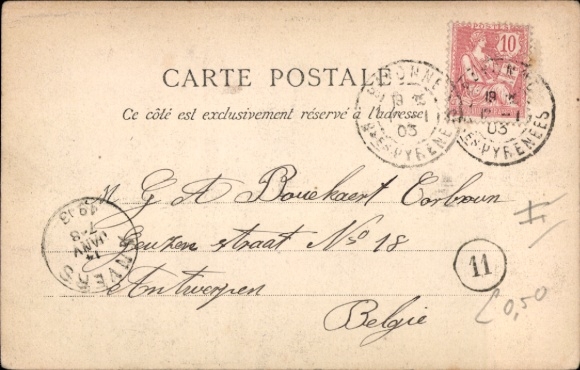 POSTES
10
CARTE POSTALE
Ce côté est exclusivement réservé à l'adresse
BAYONNE
19
03
BSES PYRÉNÉES
BAYONNE
19
03
BSES PYRÉNÉES
M G A Bouckaert Corbroun
Keuken straat No 18
Antwerpen
Belgie
ANVERS
JANV
7-8
1903
11
£ 0,50